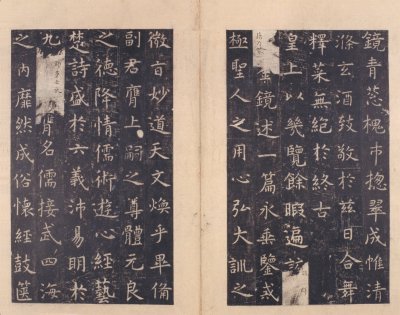 鏡青葱槐市揔翠成帷清
滌玄酒致敬於兹日合舞
釋菜無絕於終古
皇上以幾覽餘暇遍該
金鏡述一篇永垂鑒戒
極聖人之用心弘大訓之
微旨妙道天文煥乎畢備
副君膺上嗣之尊體元良
之德降情儒術遊心經藝
楚詩盛於六義沛易明於
九師多士伏膺名儒接武四海
之内靡然成俗懷經鼓篋